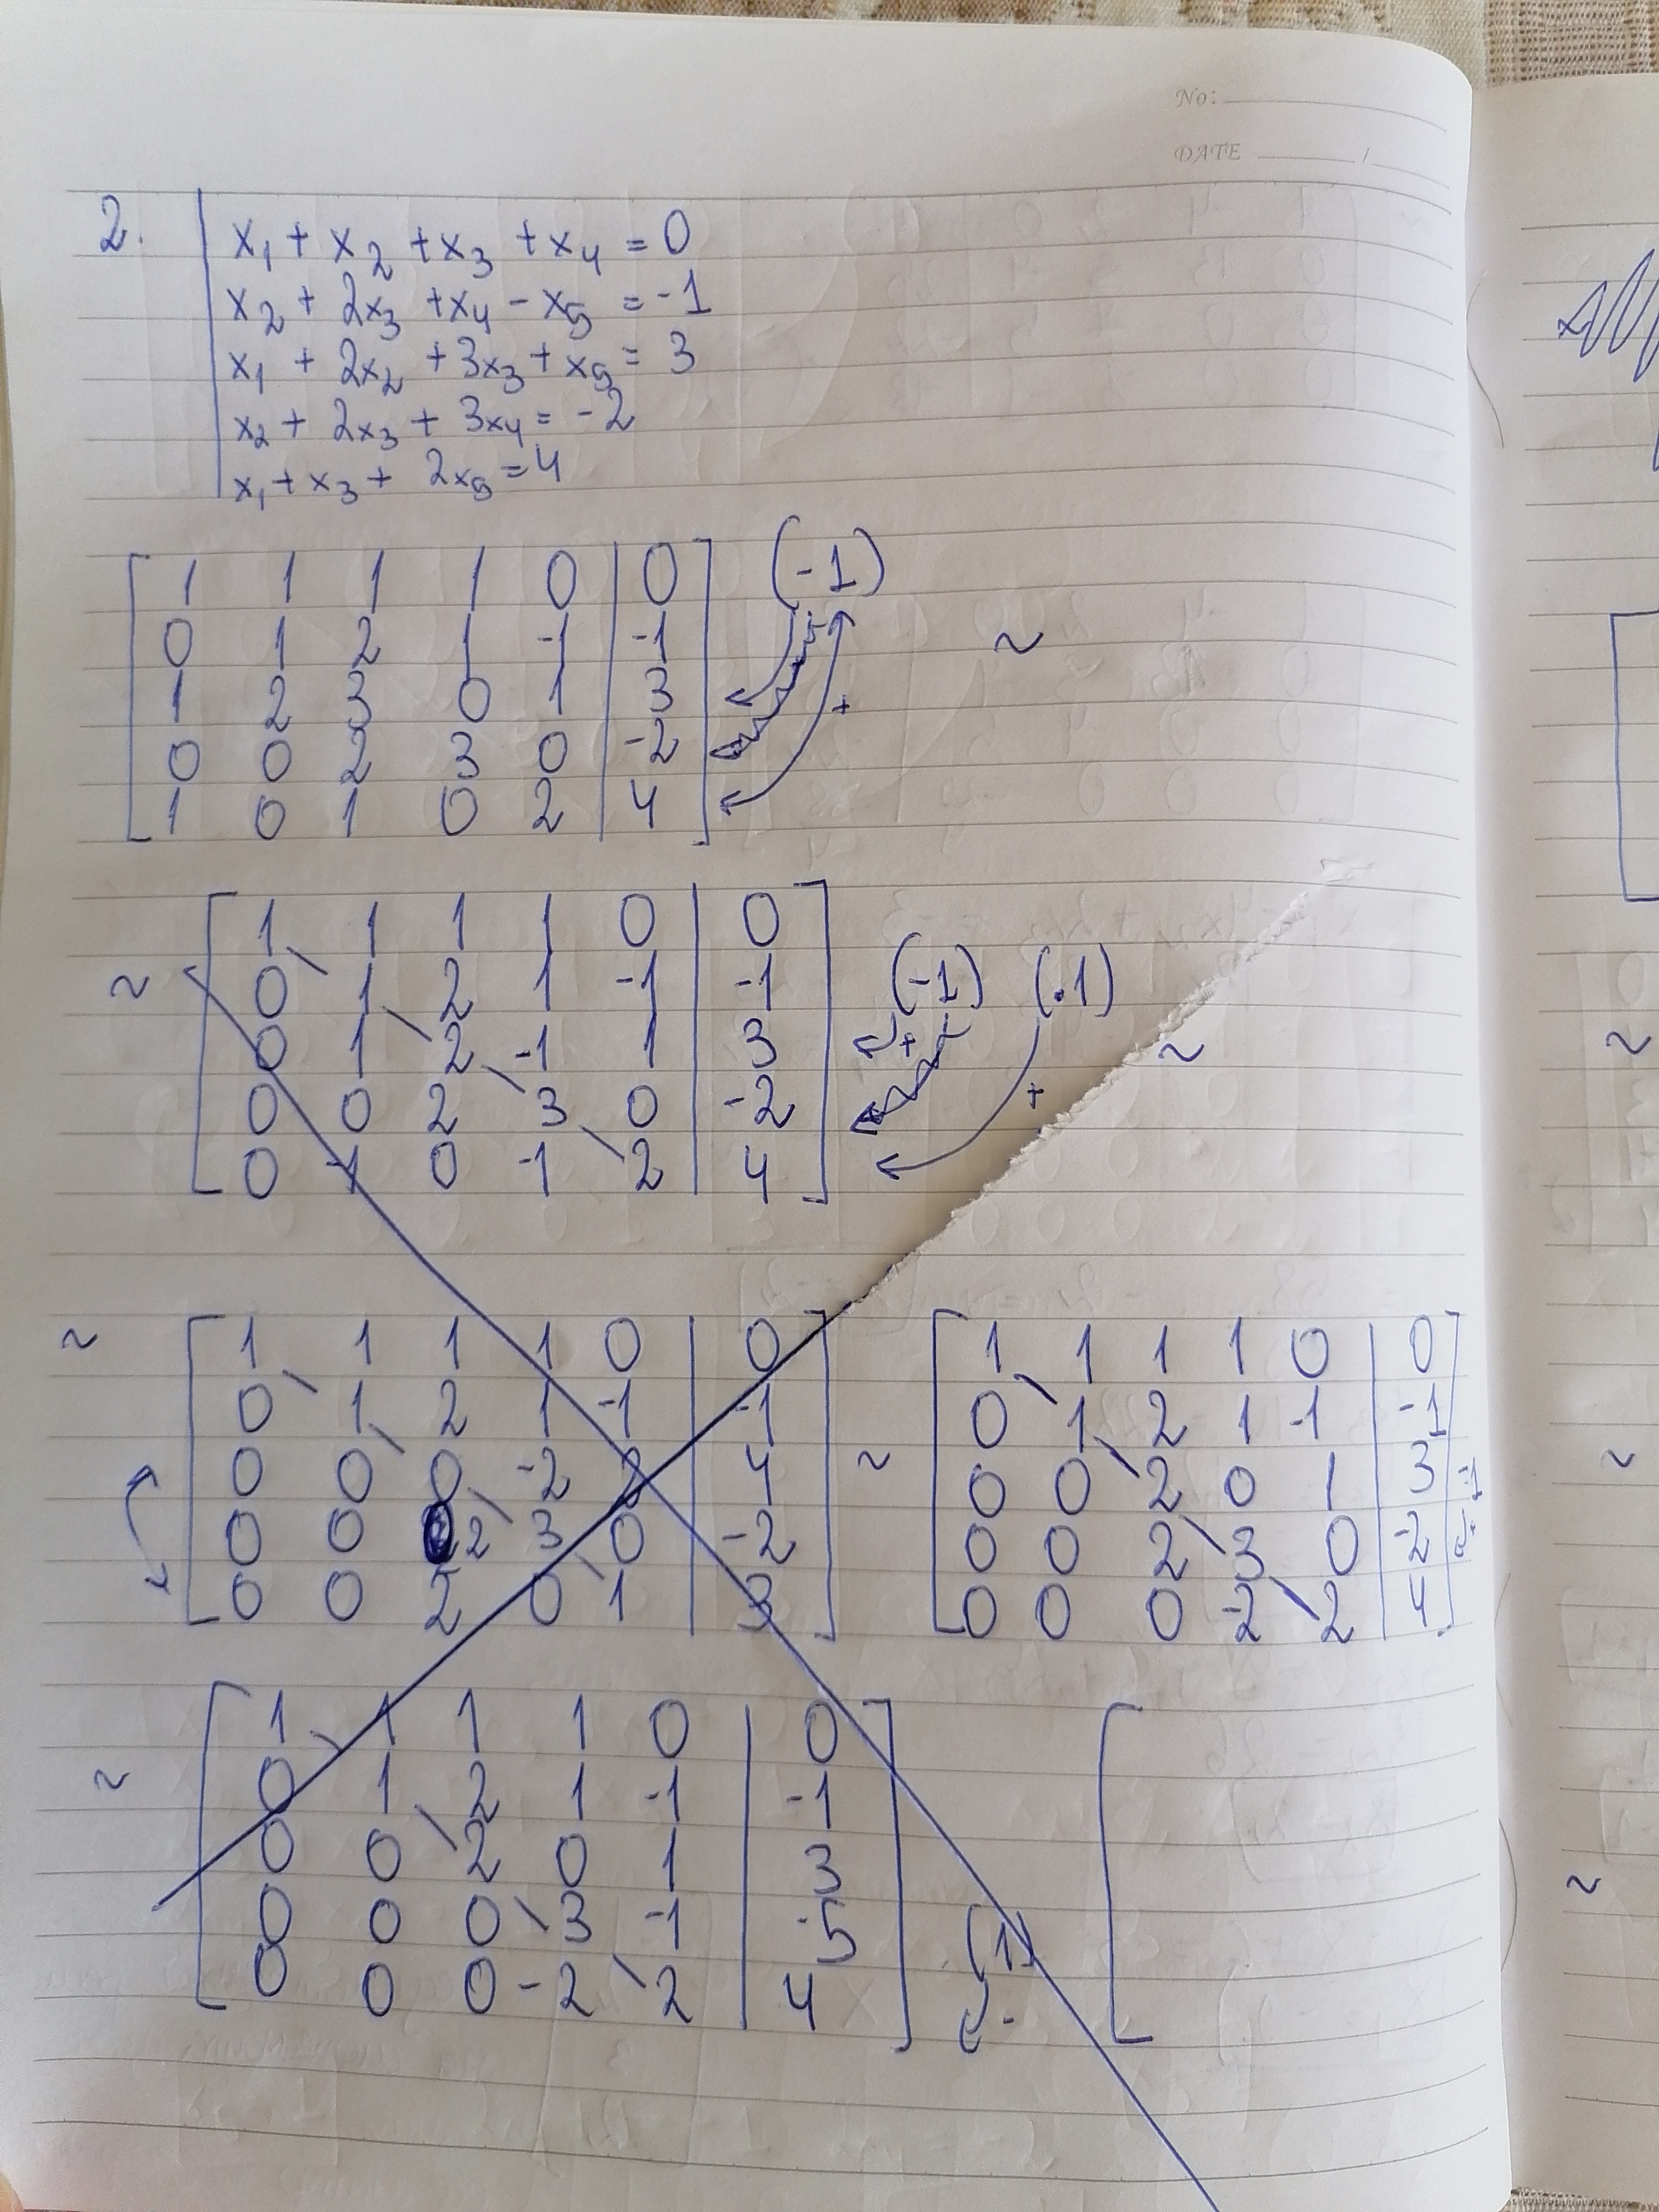 No:
DATE /
2. x₁ + x₂ + x₃ + x₄ = 0
x₂ + 2x₃ + x₄ - x₅ = -1
x₁ + 2x₂ + 3x₃ + x₅ = 3
x₂ + 2x₃ + 3x₄ = -2
x₁ + x₃ + 2x₅ = 4
[ 1 1 1 1 0 | 0 ] (-1)
0 1 2 1 -1 | -1 ~
1 2 3 0 1 | 3 +
0 0 2 3 0 | -2
1 0 1 0 2 | 4
[ 1 1 1 1 0 | 0 ]
~ 0 1 2 1 -1 | -1 (-1) (.1)
0 1 2 -1 1 | 3 + ~
0 0 2 3 0 | -2 +
0 -1 0 -1 2 | 4
~ [ 1 1 1 1 0 | 0 ] [ 1 1 1 1 0 | 0 ]
0 1 2 1 -1 | -1 0 1 2 1 -1 | -1
0 0 0 -2 2 | 4 ~ 0 0 2 0 1 | 3 -1
0 0 2 3 0 | -2 0 0 2 3 0 | -2
0 0 2 0 1 | 3 0 0 0 -2 2 | 4
[ 1 1 1 1 0 | 0 ] [
~ 0 1 2 1 -1 | -1
0 0 2 0 1 | 3
0 0 0 3 -1 | -5 (1)
0 0 0 -2 2 | 4 -
~
~
~